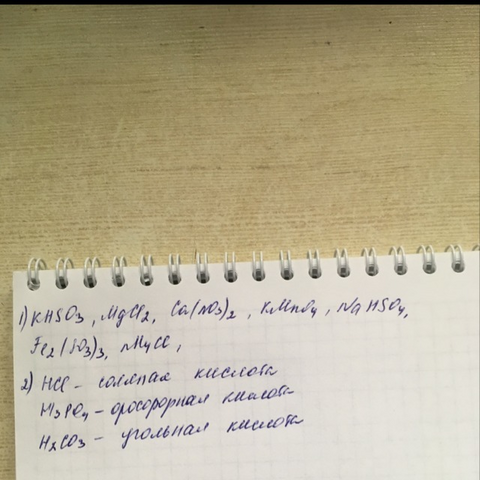 1) KHSO3, MgCl2, Ca(NO3)2, KMnO4, NaHSO4,
Fe2(SO3)3, NH4Cl,
2) HCl - соляная кислота
H3PO4 - фосфорная кислота
H2CO3 - угольная кислота